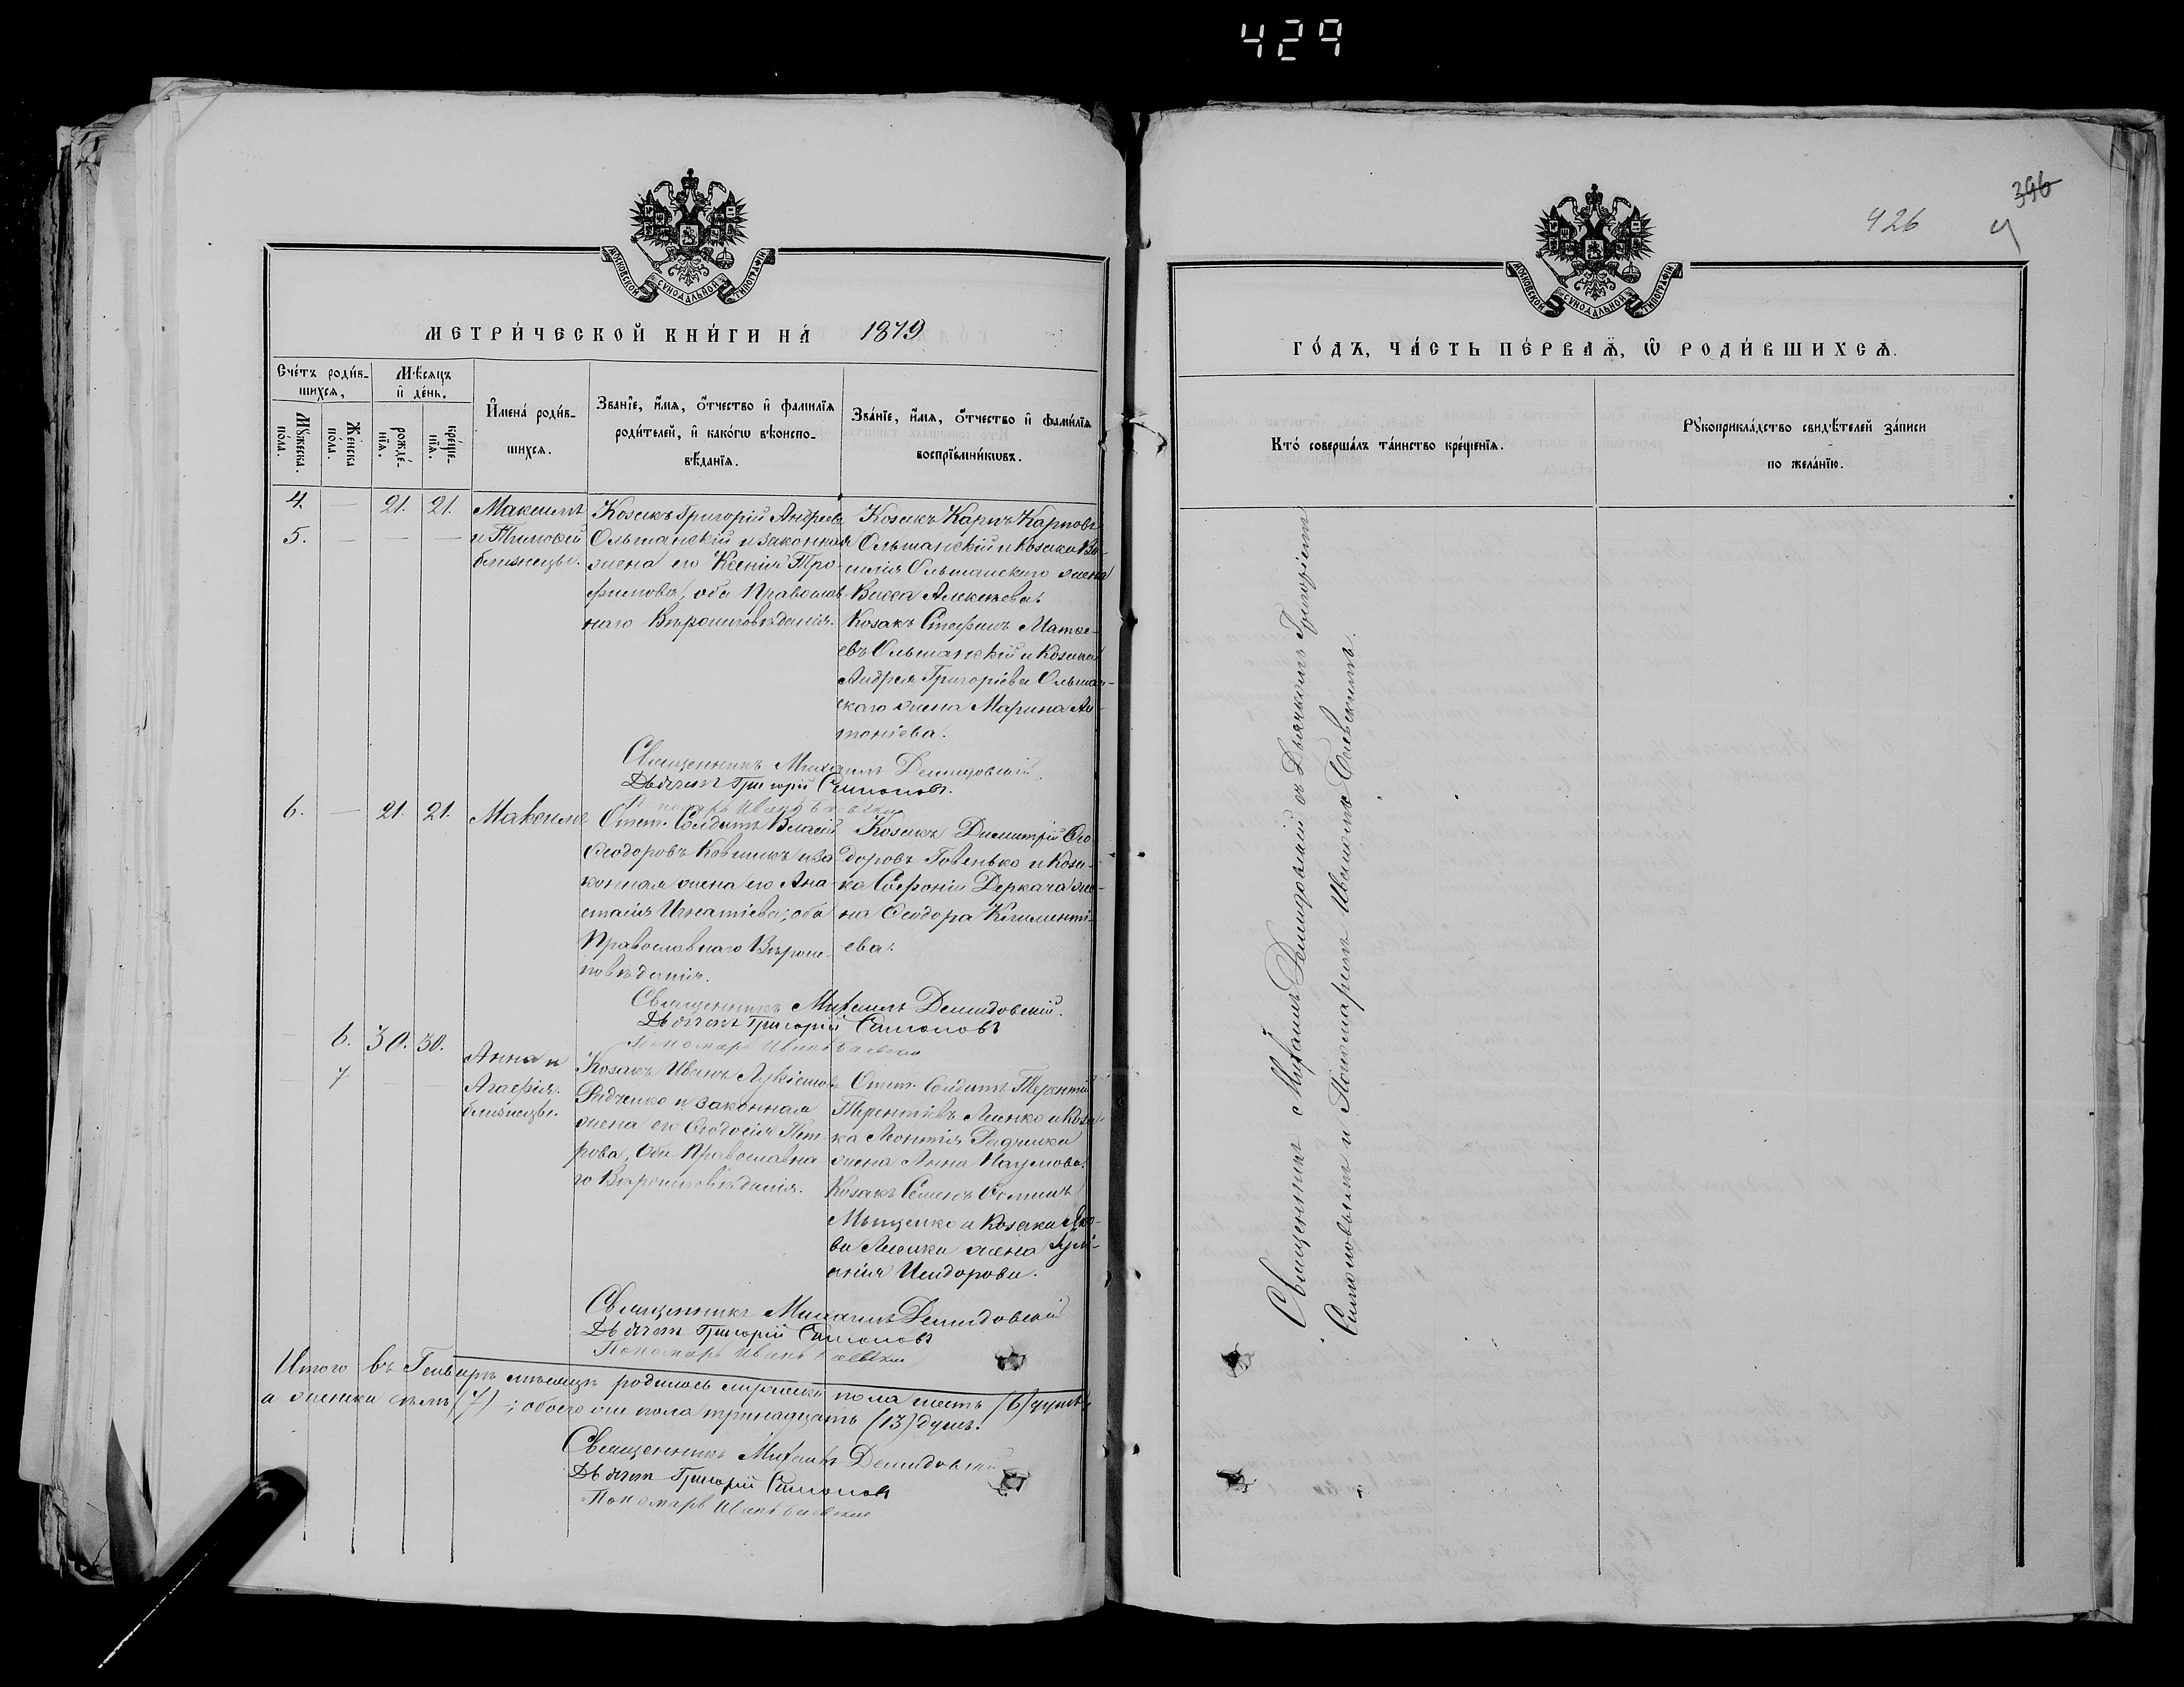 429
МОСКОВСКОЙ СѴНОДАЛЬНОЙ ТИПОГРАФІИ
МЕТРИ́ЧЕСКОЙ КНИ́ГИ НА́ 1879
Сче́тъ роди́в-
шихся,
Мѣсяцъ
и҆ де́нь.
Мꙋжеска
по́ла.
Же́нска
по́ла.
рожде́-
нїѧ.
креще́-
нїѧ.
И҆мена̀ роди́в-
шихсѧ.
Зва́нїе, и҆́мѧ, ѻ҆́тчество и҆ фами́лїѧ
роди́телей, и҆ како́гѡ вѣроиспо-
вѣ́данїѧ.
Зва́нїе, и҆́мѧ, ѻ҆́тчество и҆ фами́лїѧ
воспрїе́мникѡвъ.
4. — 21. 21. Максимъ
5. — — — и Тимофей
близнецы.
Козакъ Григорій Андреевъ
Ольшанскій и законная
жена его Ксенія Тро-
фимова, оба Православ-
наго Вѣроисповѣданія.
Козакъ Карпъ Карповъ
Ольшанскій и Козака Ва-
силія Ольшанскаго жена
Васса Алексѣева.
Козакъ Стефанъ Матве-
евъ Ольшанскій и Козака
Андрея Григоріева Ольшан-
скаго жена Марина Ан-
тоніева.
Священникъ Михаилъ Демидовскій.
Дьячекъ Григорій Самоновъ.
Пономарь Иванъ
6. — 21. 21. Максимъ
Отст. Солдатъ Власій
Ѳеодоровъ Ковшикъ и за-
конная жена его Ана-
стасія Игнатіева; оба
Православнаго Вѣроис-
повѣданія.
Козакъ Димитрій Ѳео-
доровъ Говенько и Коза-
ка Софонія Деркача же-
на Ѳеодора Климентi-
ева.
Священникъ Михаилъ Демидовскій.
Дьячекъ Григорій Самоновъ
Пономарь Иванъ
— 6. 30. 30. Анна и
— 7 — — Агафія.
близнецы.
Козакъ Иванъ Лукіановъ
Радченко и законная
жена его Ѳеодосія Пет-
рова, Оба Православна
го Вѣроисповѣданія.
Отст. Солдатъ Терентій
Терентіевъ Ленко и Коза-
ка Леонтія Радченка
жена Анна Наумова.
Козакъ Семенъ Ѳоминъ
Мищенко и Козака Яко-
ва Ленка жена
Исидорова.
Священникъ Михаилъ Демидовскій
Дьячекъ Григорій Самоновъ
Пономарь Иванъ
Итого въ Генварѣ мѣсяцѣ родилось мужеска пола шесть (6) душъ,
а женска семь (7) —; обоего же пола тринадцать (13) душъ.
Священникъ Михаилъ Демидовскій
Дьячекъ Григорій Самоновъ
Пономарь Иванъ
396
426
МОСКОВСКОЙ СѴНОДАЛЬНОЙ ТИПОГРАФІИ
ГО́ДЪ, ЧА́СТЬ ПЕ́РВАѦ, Ѡ҆ РОДИ́ВШИХСѦ.
Кто̀ соверша́лъ та́инство креще́нїѧ.
Рꙋкоприкла́дство свидѣ́телей за́писи
по жела́нїю.
Священникъ Михаилъ Демидовскій съ Дьячкомъ Григоріемъ
Самоновымъ и Пономаремъ Иваномъ